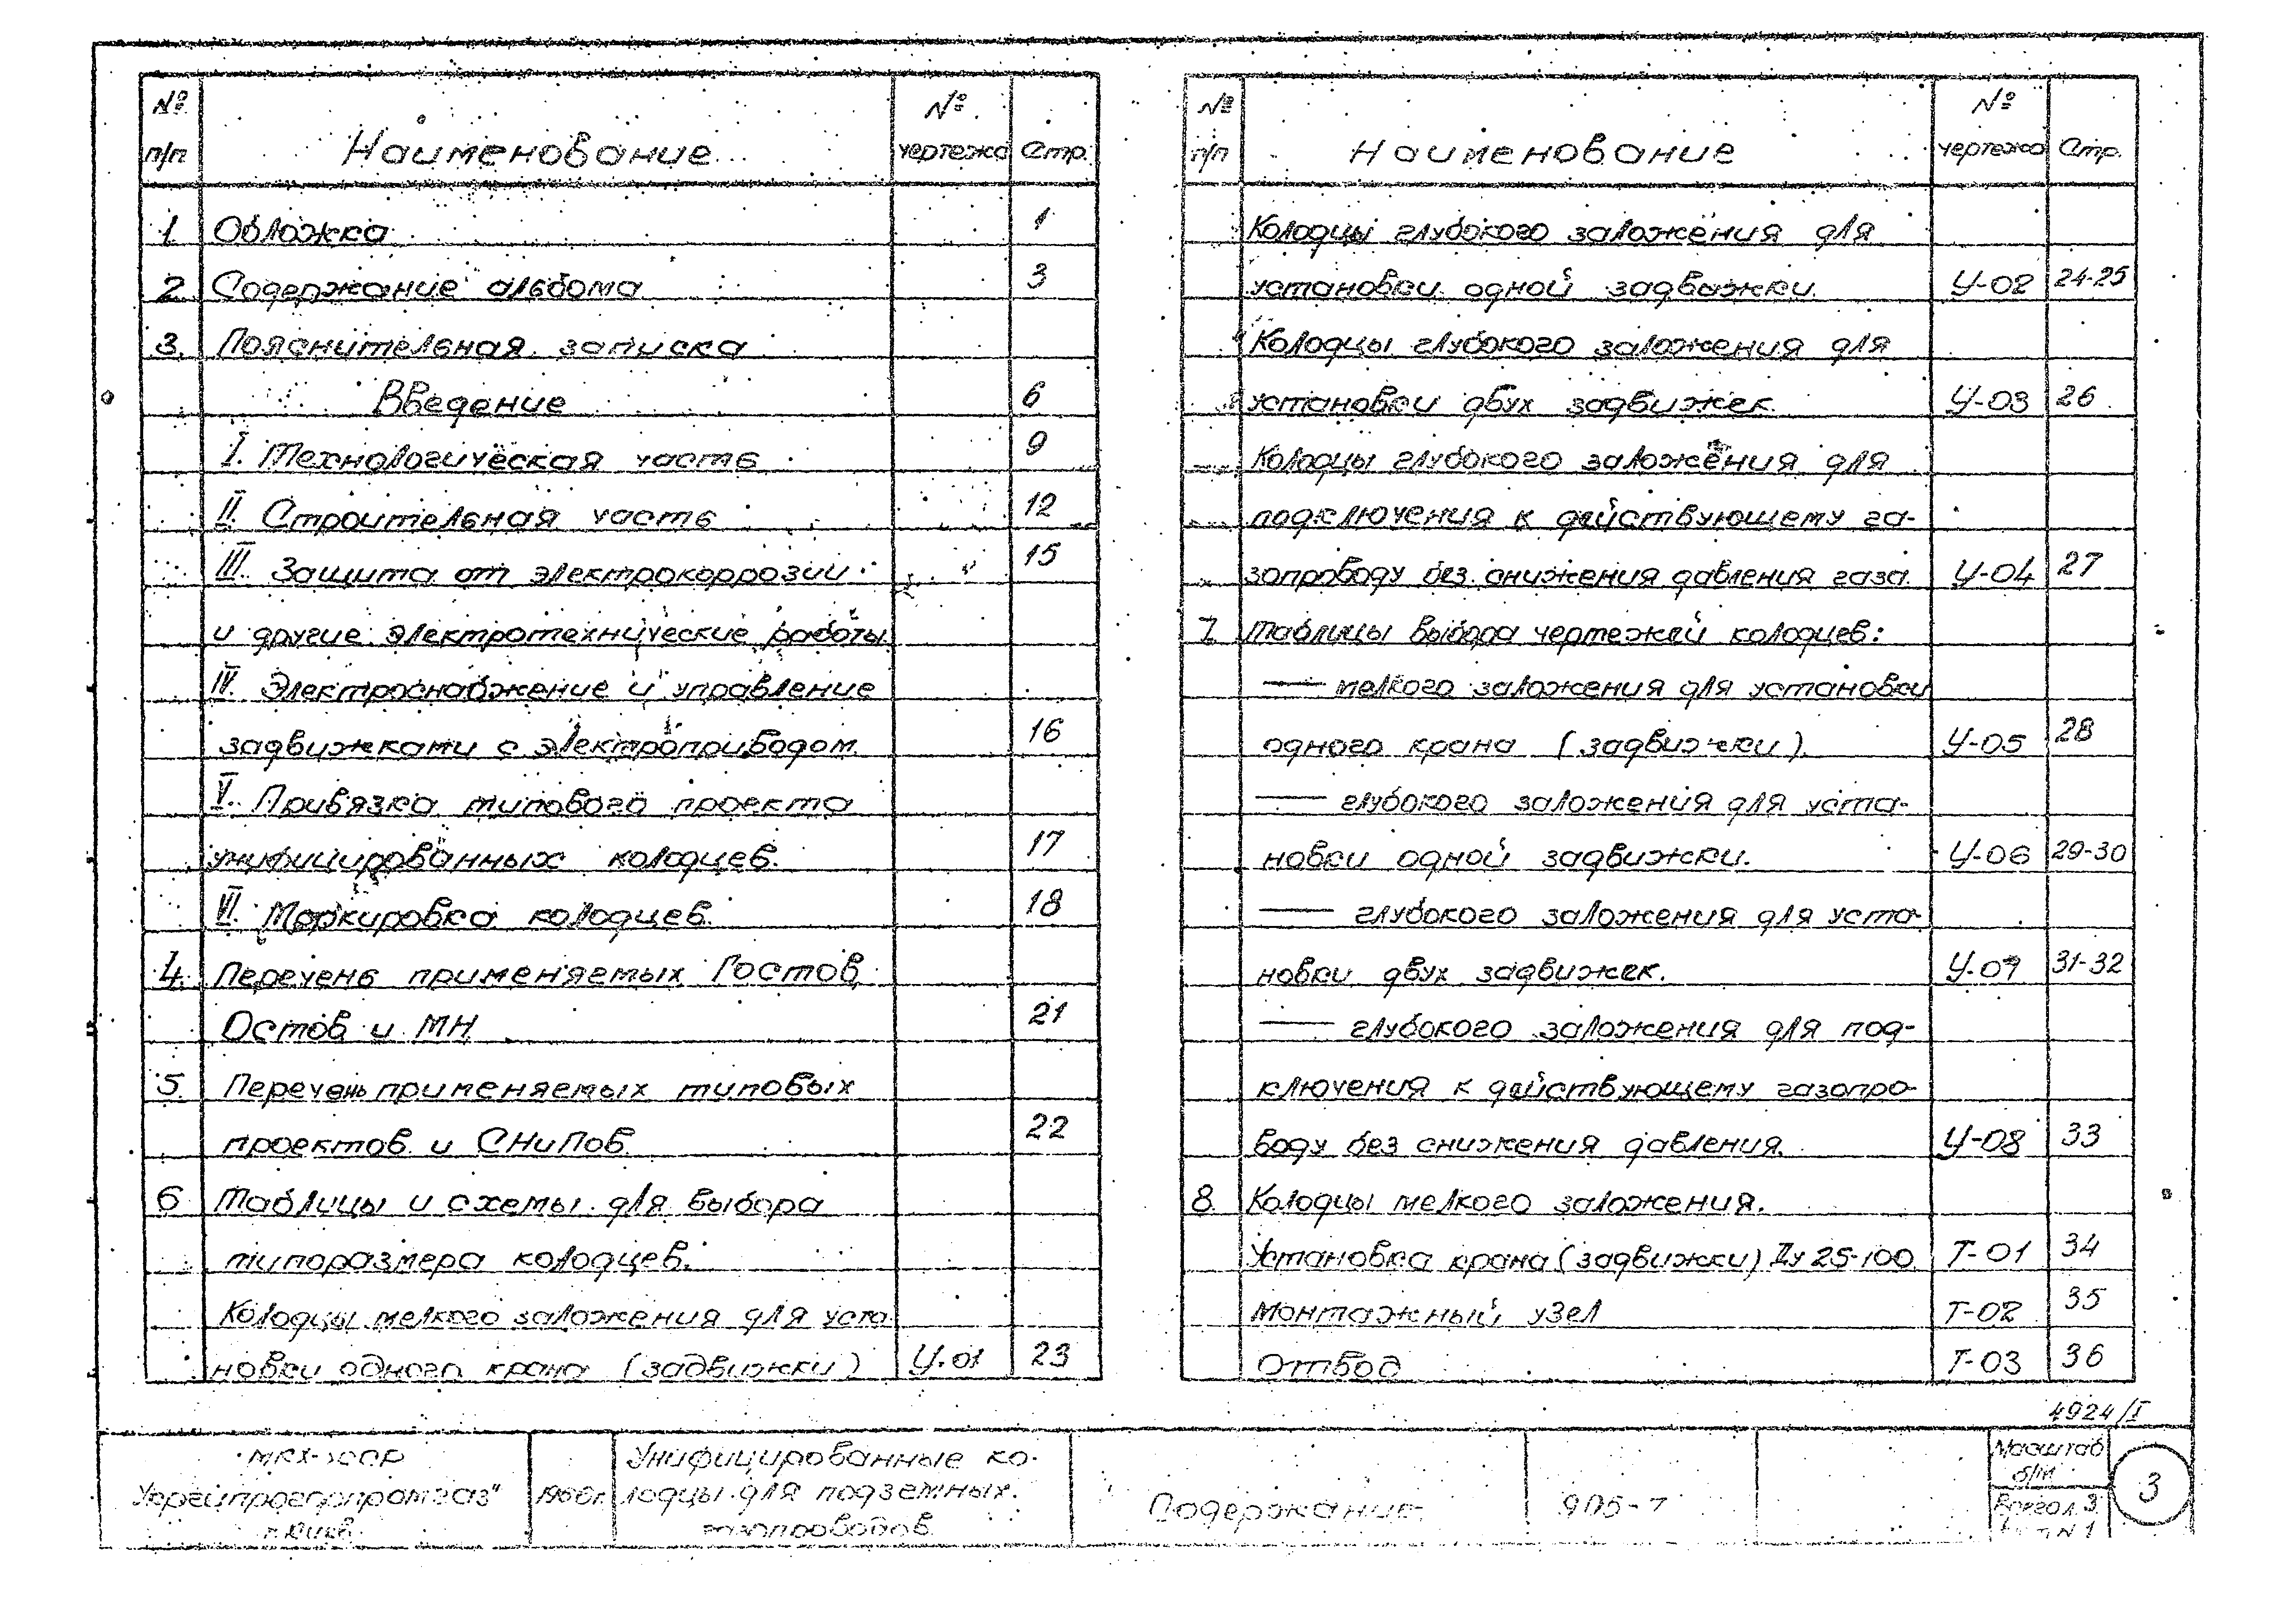 № п/п Наименование № чертежа Стр.
1 Обложка 1
2 Содержание альбома 3
3. Пояснительная записка
Введение 6
I. Технологическая часть 9
II. Строительная часть 12
III. Защита от электрокоррозии 15
и другие электротехнические работы
IV. Электроснабжение и управление
задвижками с электроприводом 16
V. Привязка типового проекта
унифицированных колодцев. 17
VI. Маркировка колодцев. 18
4. Перечень применяемых Гостов,
Остов и МН 21
5. Перечень применяемых типовых
проектов и СНиПов 22
6 Таблицы и схемы для выбора
типоразмера колодцев.
Колодцы мелкого заложения для уста
новки одного крана (задвижки) У-01 23
№ п/п Наименование № чертежа Стр.
Колодцы глубокого заложения для
установки одной задвижки. У-02 24-25
Колодцы глубокого заложения для
установки двух задвижек У-03 26
Колодцы глубокого заложения для
подключения к действующему га-
зопроводу без снижения давления газа. У-04 27
7 Таблицы выбора чертежей колодцев:
— мелкого заложения для установки
одного крана (задвижки). У-05 28
— глубокого заложения для уста-
новки одной задвижки. У-06 29-30
— глубокого заложения для уста-
новки двух задвижек. У-07 31-32
— глубокого заложения для под-
ключения к действующему газопро-
воду без снижения давления. У-08 33
8. Колодцы мелкого заложения.
Установка крана (задвижки) Ду 25-100 Т-01 34
Монтажный узел Т-02 35
Отвод Т-03 36
4924/I
Унифицированные ко-
лодцы для подземных
газопроводов
Содержание
Масштаб
б/м
3